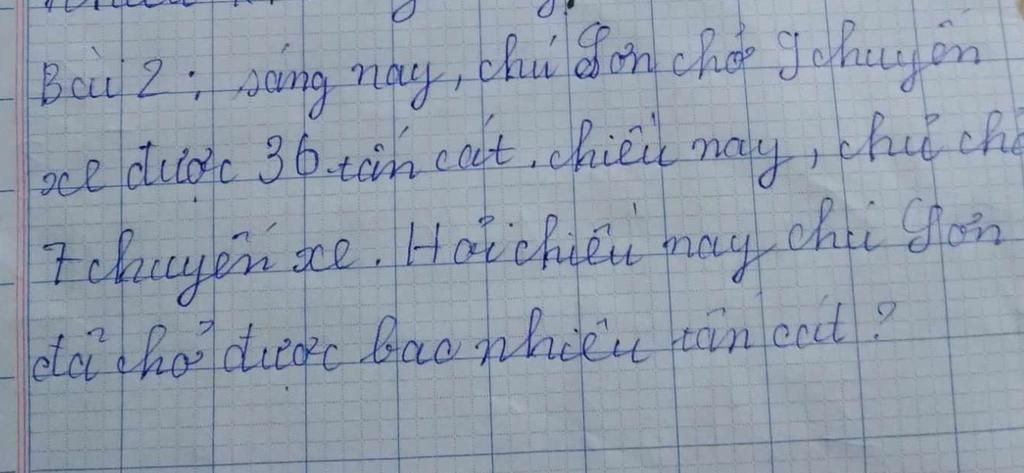 Bài 2: sáng nay, chú Sơn chở 9 chuyến
xe được 36 tấn cát. chiều nay, chú chở
7 chuyến xe. Hỏi chiều nay chú Sơn
đã chở được bao nhiêu tấn cát?